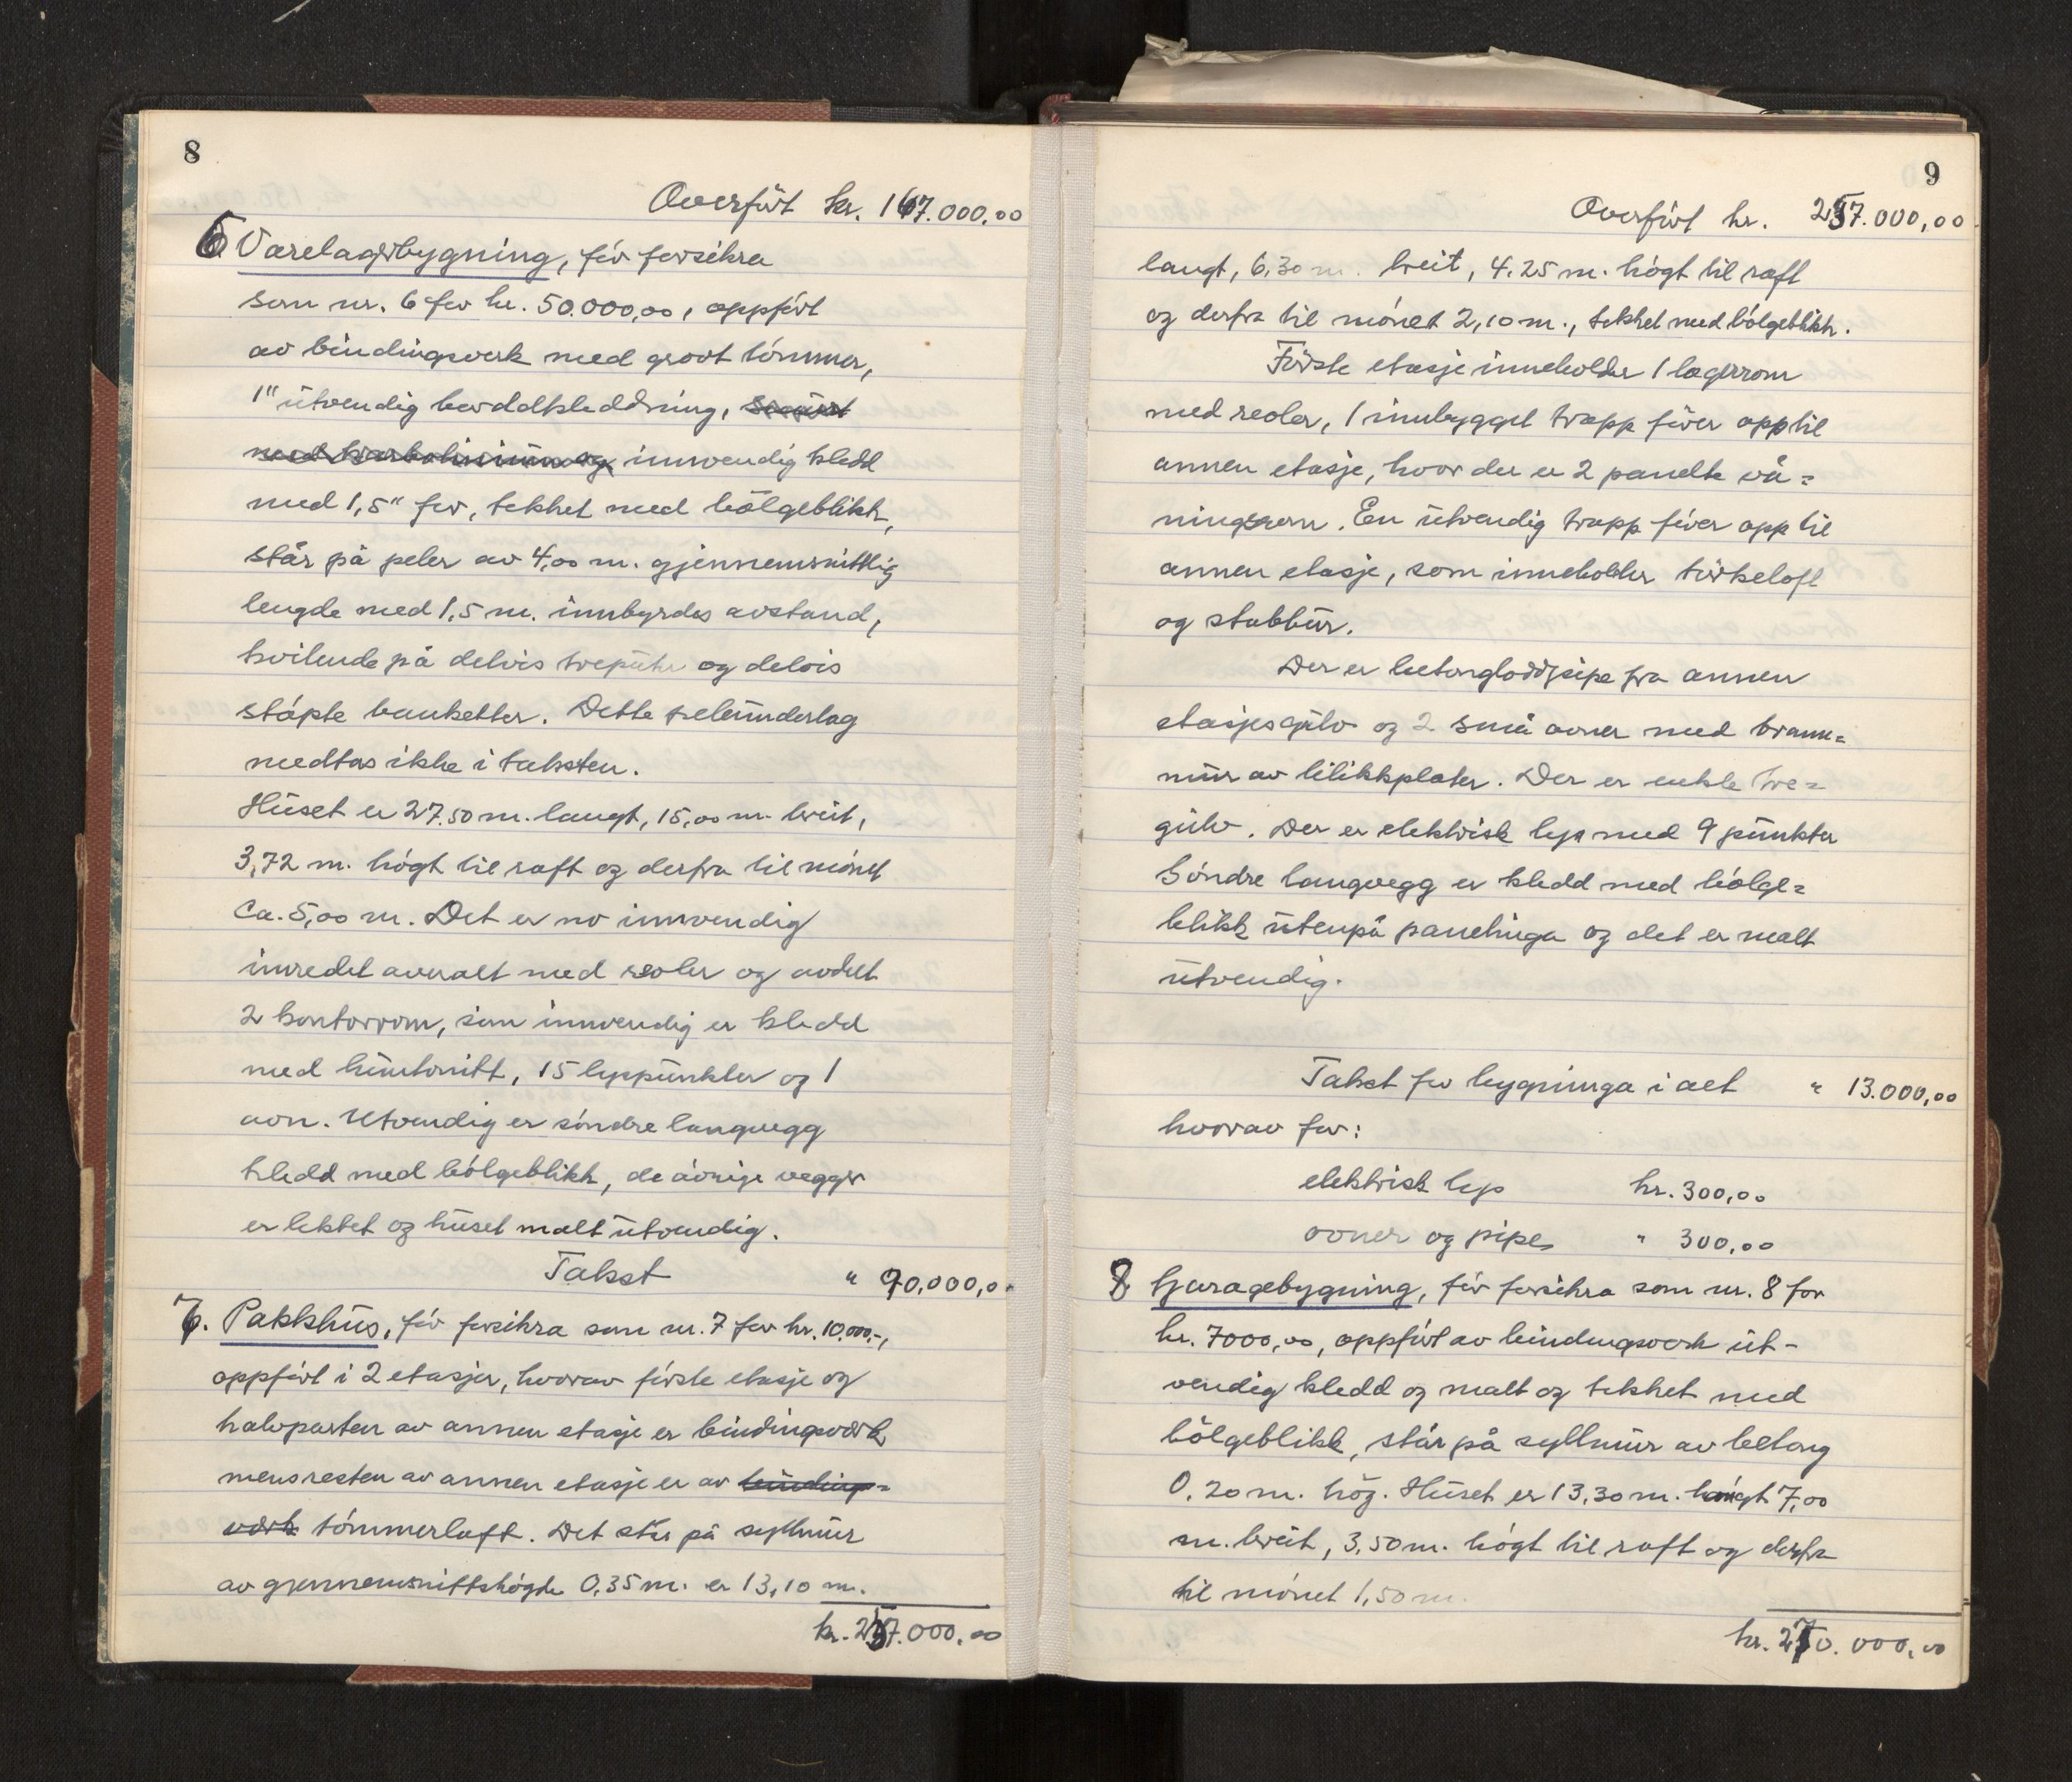 8
Overført kr. 167.000,00
6. Varelagerbygning, før forsikra
som nr. 6 for kr. 50.000,00, oppført
av bindingsverk med grovt tømmer,
1" utvendig borddkleddning, smurt
med karbolinium og innvendig kledd
med 1,5" for, tekket med bølgeblikk,
står på peler av 4,00 m. gjennemsnittlig
lengde med 1,5 m. innbyrdes avstand,
hvilende på delvis treputer og delvis
støpte banketter. Dette peleunderlag
medtas ikke i taksten.
Huset er 27.50 m. langt, 15,00 m. breit,
3,72 m. høgt til raft og derfra til mønet
Ca. 5,00 m. Det er no innvendig
inredet averalt med reoler og avdelt
2 kontorrom, som innvendig er kledd
med huntonitt, 15 lyspunkter og 1
ovn. Utvendig er søndre langvegg
kledd med bølgeblikk, de øvrige vegger
er lektet og huset malt utvendig.
Takst " 90,000,0
7. Pakkhus, før forsikra som nr. 7 for kr. 10.000.-,
oppført i 2 etasjer, hvorav første etasje og
halvparten av annen etasje er bindingsverk
mens resten av annen etasje er av bindings=
verk tømmerloft. Det står på syllmur
av gjennemsnittshøgde 0,35 m. er 13,10 m.
kr. 257.000,00
9
Overført kr. 257.000,00
langt, 6,30 m. breit, 4,25 m. høgt til raft
og derfra til mønet 2,10 m., tekket med bølgeblikk.
Første etasje inneholder 1 lagerrom
med reoler, 1 innbygget trapp fører opp til
annen etasje, hvor der er 2 panelte vå=
ningsrom. En utvendig trapp fører opp til
annen etasje, som inneholder tørkeloft
og stabbur.
Der er betongloddpipe fra annen
etasjesgulv og 2 små ovner med brann=
mur av blikkplater. Der er enkle tre=
gulv. Der er elektrisk lys med 9 punkter
Søndre langvegg er kledd med bølge=
blikk utenpå panelinga og det er malt
utvendig.
Takst for bygninga i alt " 13.000,00
hvorav for:
elektrisk lys kr. 300,00
ovner og pipe " 300,00
8 Garagebygning, før forsikra som nr. 8 for
kr. 7000,00, oppført av bindingsverk ut-
vendig kledd og malt og tekket med
bølgeblikk, står på syllmur av betong
0,20 m. høg. Huset er 13,30 m. langt 7,00
m. breit, 3,50 m. høgt til raft og derfra
til mønet 1,50 m.
kr. 270.000,00